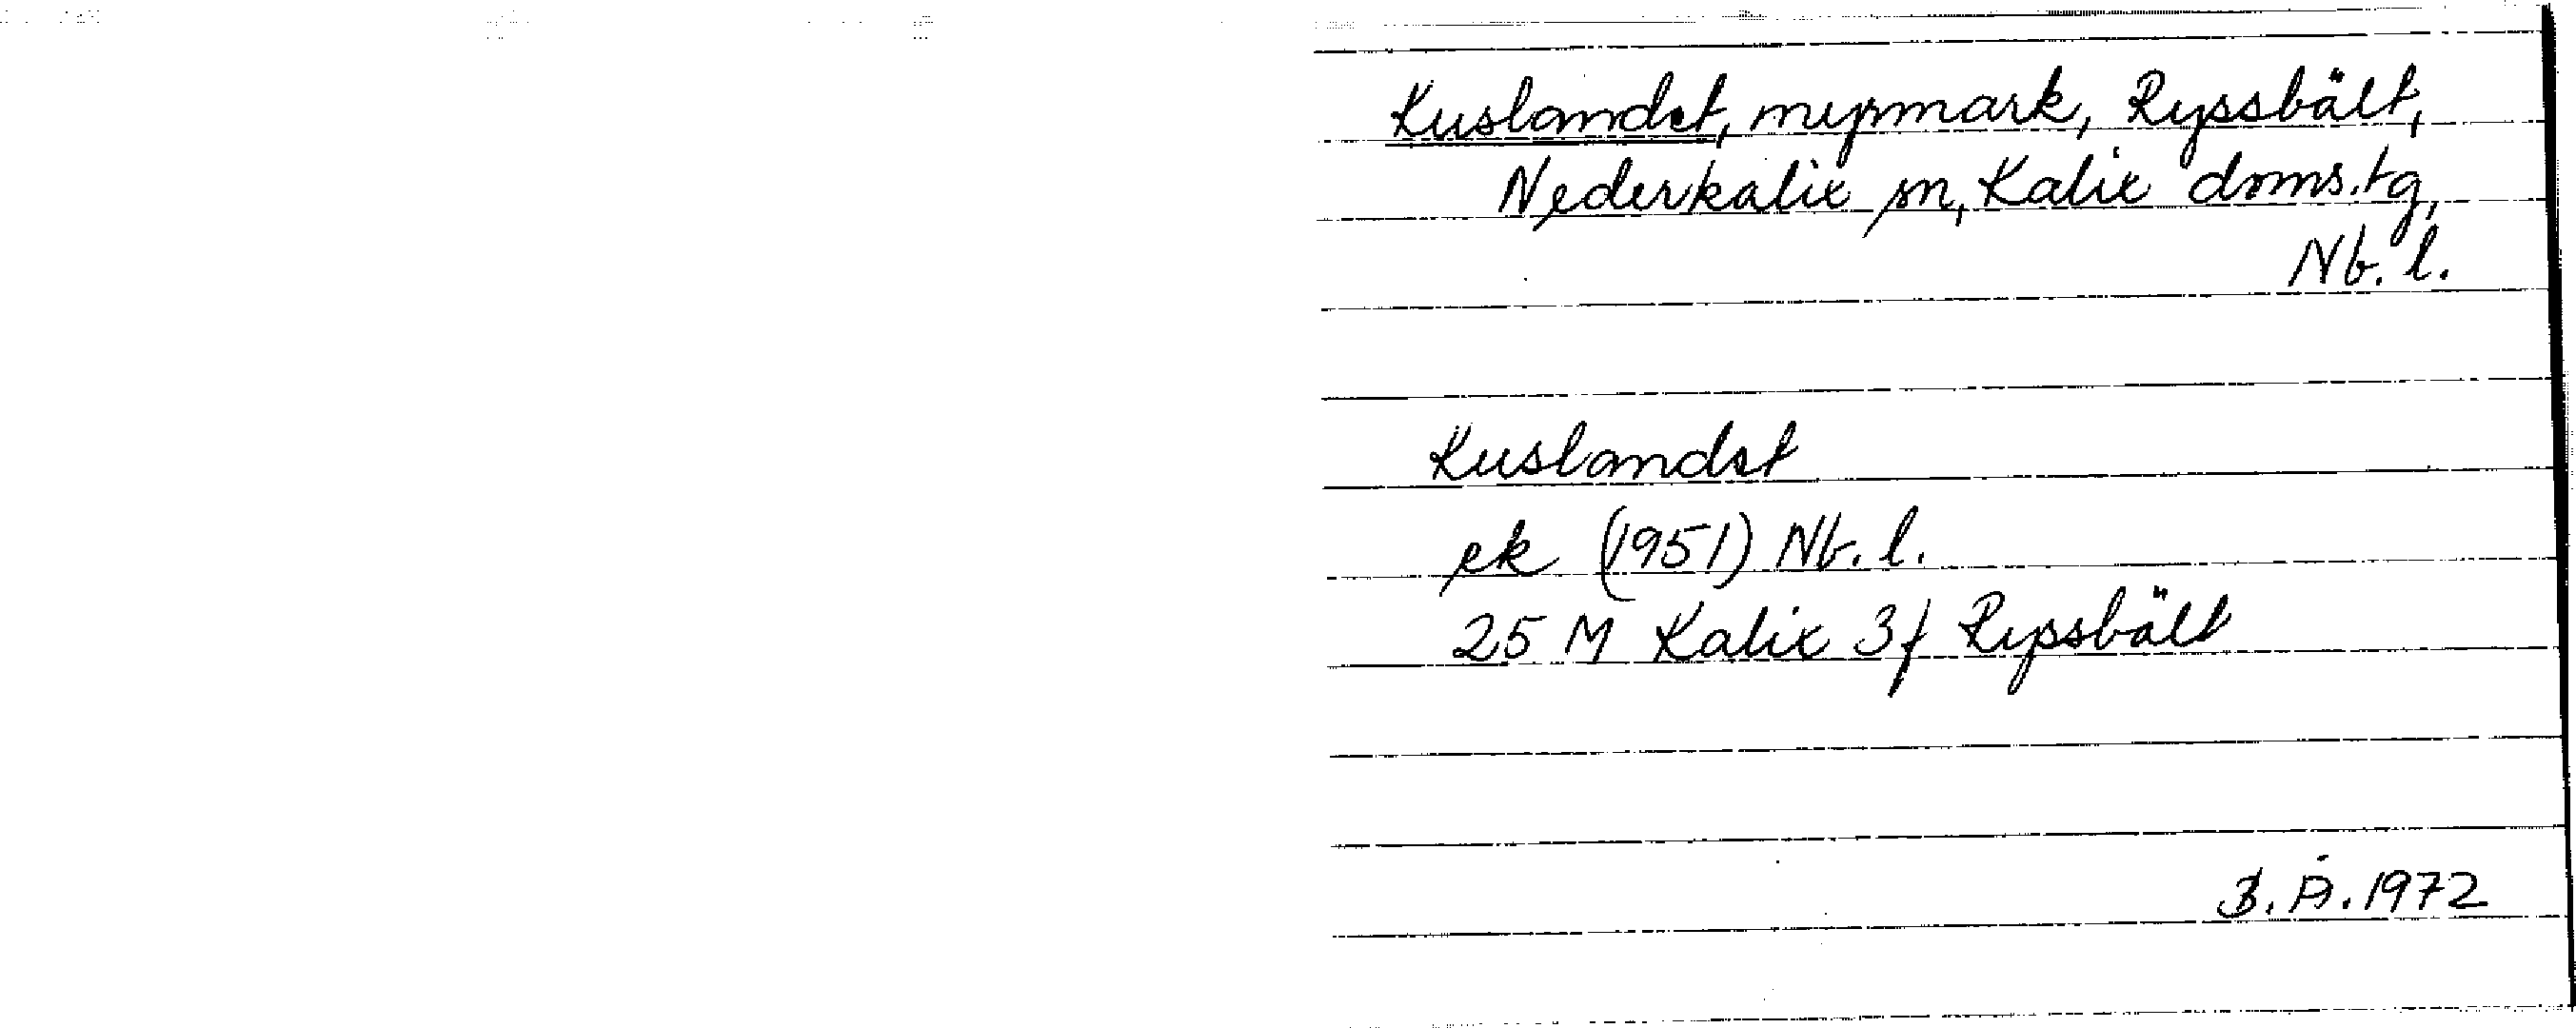 Kuslandet, myrmark, Ryssbält,
Nederkalix sn, Kalix doms.tg,
Nb. l.
Kuslandet
ek (1951) Nb. l.
25 M Kalix 3f Ryssbält
B. Å. 1972